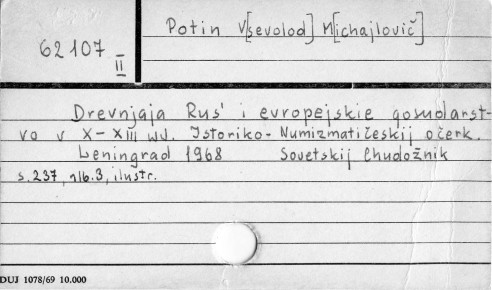 Potin V[sevolod] M[ichajlovič]
62107
II
Drevnjaja Rus' i evropejskie gosudarst-
vo v X-XIII vv. Istoriko-Numizmatičeskij očerk.
Leningrad 1968 Sovetskij Chudožnik
s.237, nlb.3, ilustr.
DUJ 1078/69 10.000